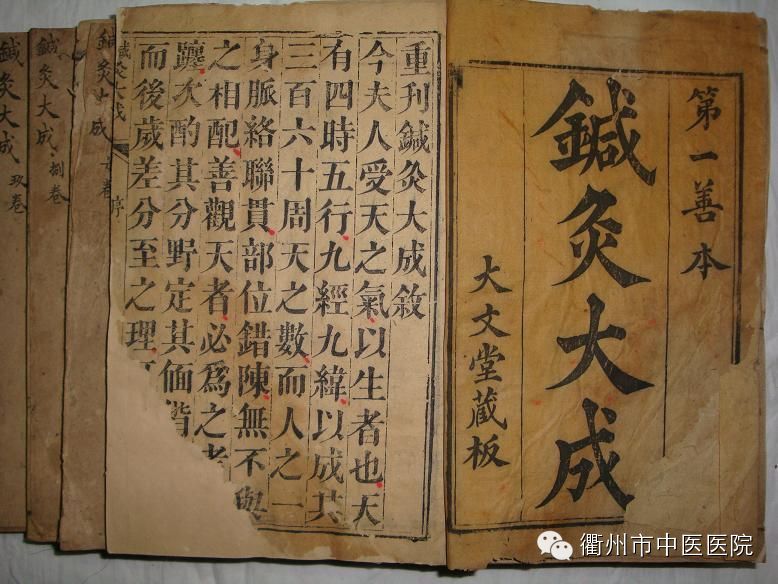 第一善本
鍼灸大成
大文堂藏板
重刊鍼灸大成敘
今夫人受天之氣以生者也天
有四時五行九經九緯以成其
三百六十周天之數而人之一
身脈絡聯貫部位錯陳無不與
之相配善觀天者必為之考
躔次酌其分野定其偭
而後歲差分至之理
鍼灸大成 序
鍼灸大成 卷
鍼灸大成 捌卷
鍼灸大成 玖卷
衢州市中医医院